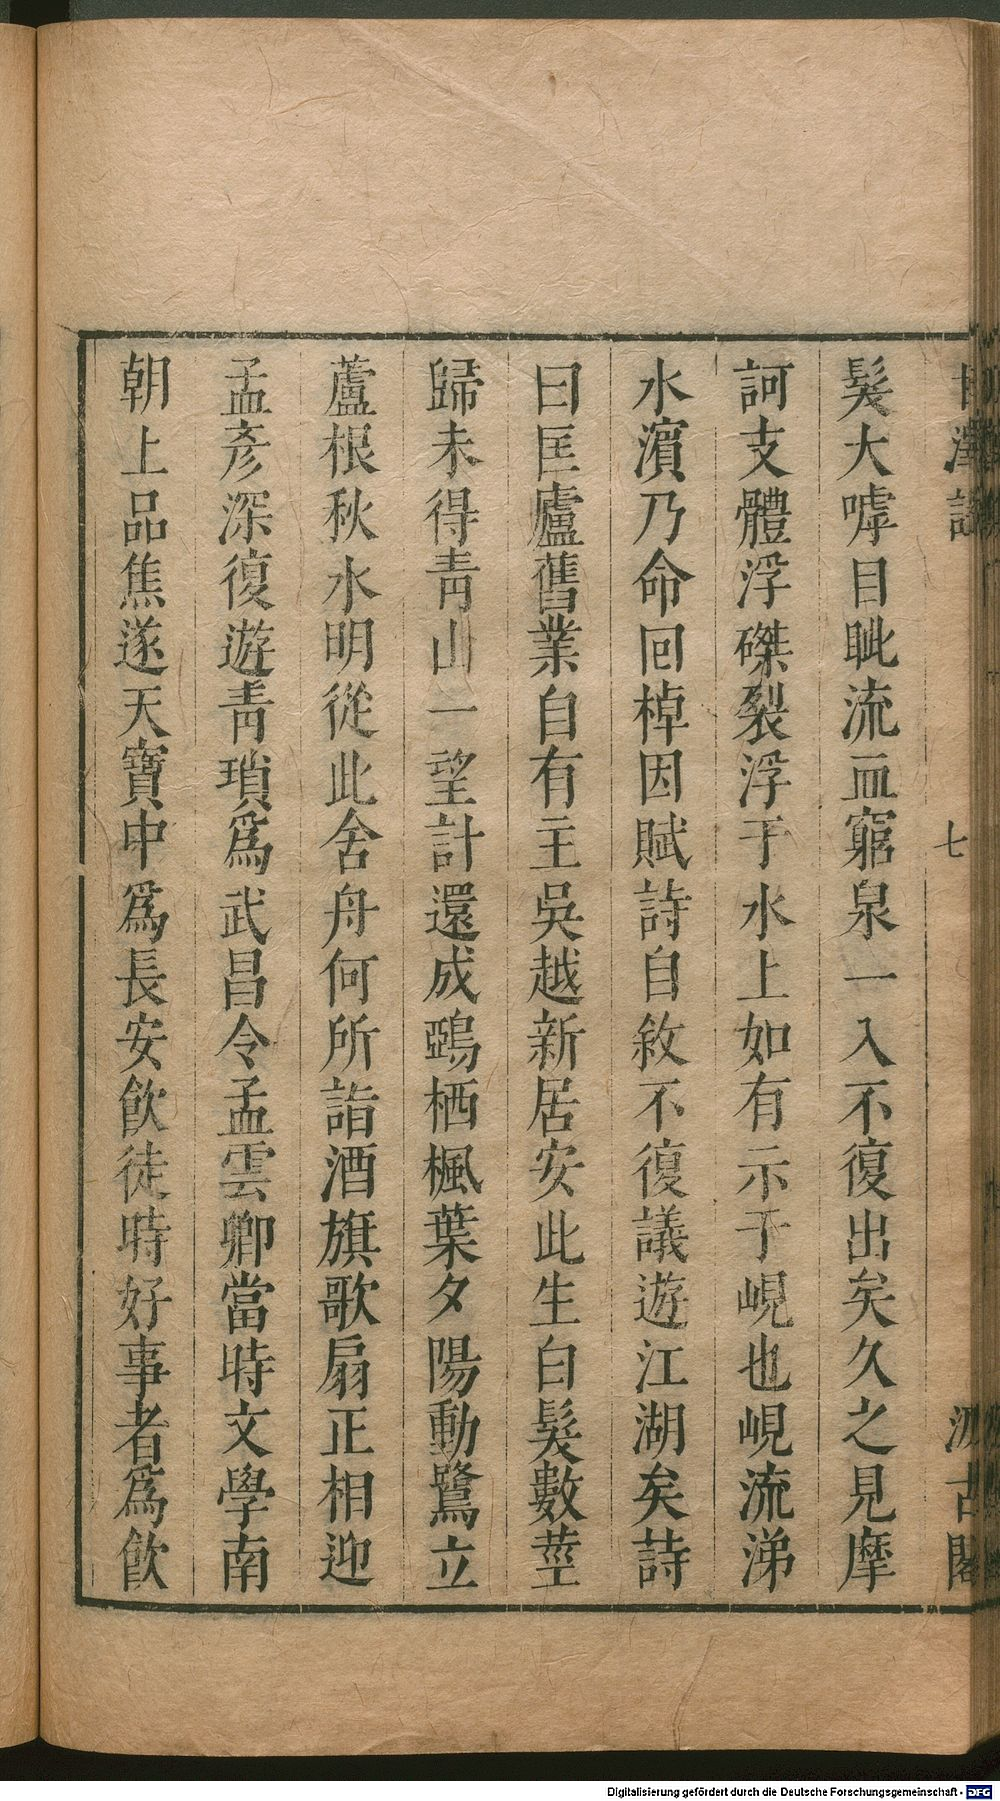 甘澤謠
七
汲古閣
髮大嘑目眦流血窮泉一入不復出矣久之見摩
訶支體浮磔裂浮于水上如有示于峴也峴流涕
水濱乃命回棹因賦詩自敘不復議遊江湖矣詩
曰匡廬舊業自有主吳越新居安此生白髮數莖
歸未得靑山一望計還成鵶栖楓葉夕陽動鷺立
蘆根秋水明從此舍舟何所詣酒旗歌扇正相迎
孟彥深復遊靑瑣爲武昌令孟雲卿當時文學南
朝上品焦遂天寶中爲長安飮徒時好事者爲飮
Digitalisierung gefördert durch die Deutsche Forschungsgemeinschaft - DFG